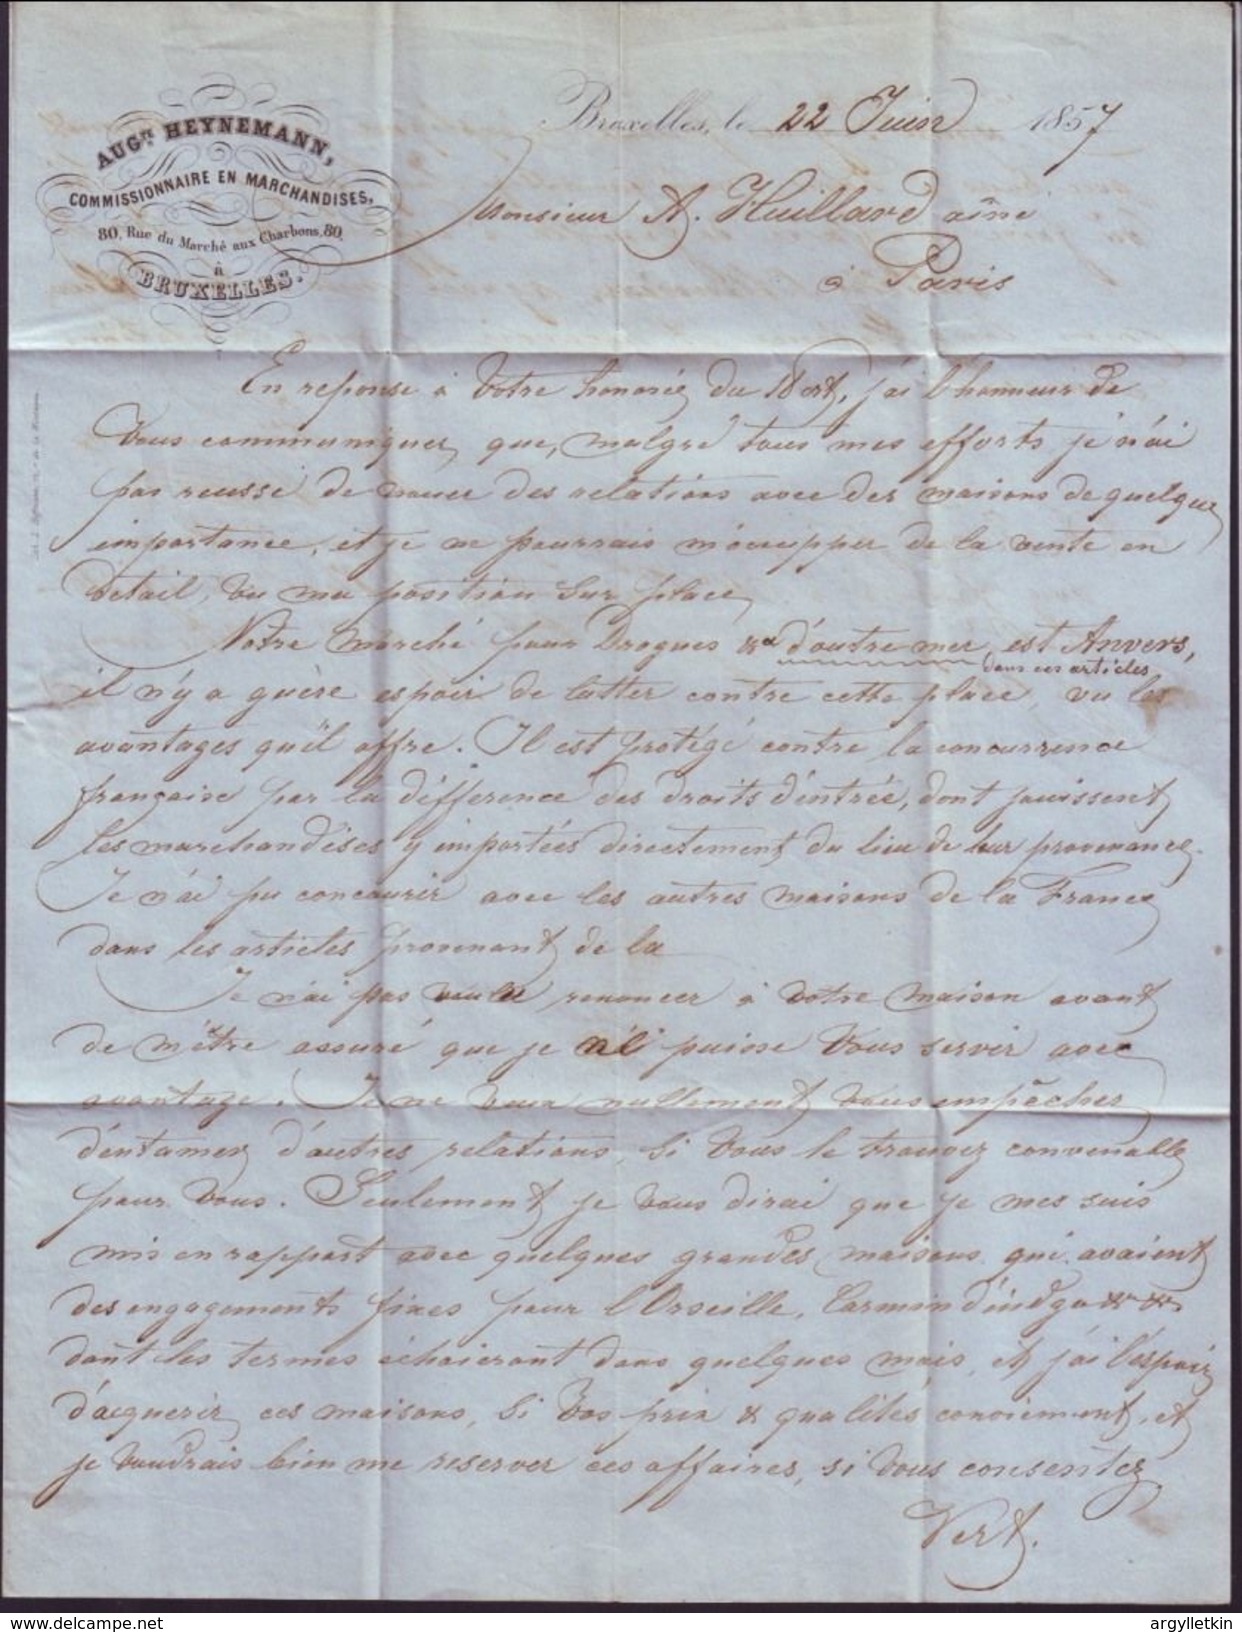 AUG.TE HEYNEMANN,
COMMISSIONNAIRE EN MARCHANDISES,
80, Rue du Marché aux Charbons, 80,
à
BRUXELLES.
Bruxelles, le 22 Juin 1857
Monsieur A. Huillard aîné
à Paris
En reponse à Votre honorée du 18 ct, j'ai l'honneur de
Vous communiquer que, malgré tous mes efforts je n'ai
pas reussi de nouer des relations avec des maisons de quelque
importance, et je ne pourrais m'occupper de la vente en
detail, vu ma position sur place
Notre marché pour Drogues &a d'outre mer est Anvers,
dans ces articles
il n'y a guère espoir de lutter contre cette place, vu les
avantages qu'il offre. Il est protégé contre la concurrence
française par la différence des droits d'entrée, dont jouissent
les marchandises y importées directement du lieu de leur provenance.
Je n'ai pu concourir avec les autres maisons de la France
dans les articles provenant de la
Je n'ai pas voulu renoncer à votre maison avant
de m'être assuré que je puisse Vous servir avec
avantage. Je ne veux nullement vous empêcher
d'entamer d'autres relations, si Vous le trouvez convenable
pour Vous. Seulement je vous dirai que je mes suis
mis en rapport avec quelques grandes maisons qui avaient
des engagements fixes pour l'Orseille, Carmin d'indgo &c &c
dont les termes échoieront dans quelques mois, et j'ai l'espoir
d'acquerir ces maisons, si Vos prix & qualités conviennent, et
je voudrais bien me reserver ces affaires, si vous consentez
Vert.
argylletkin